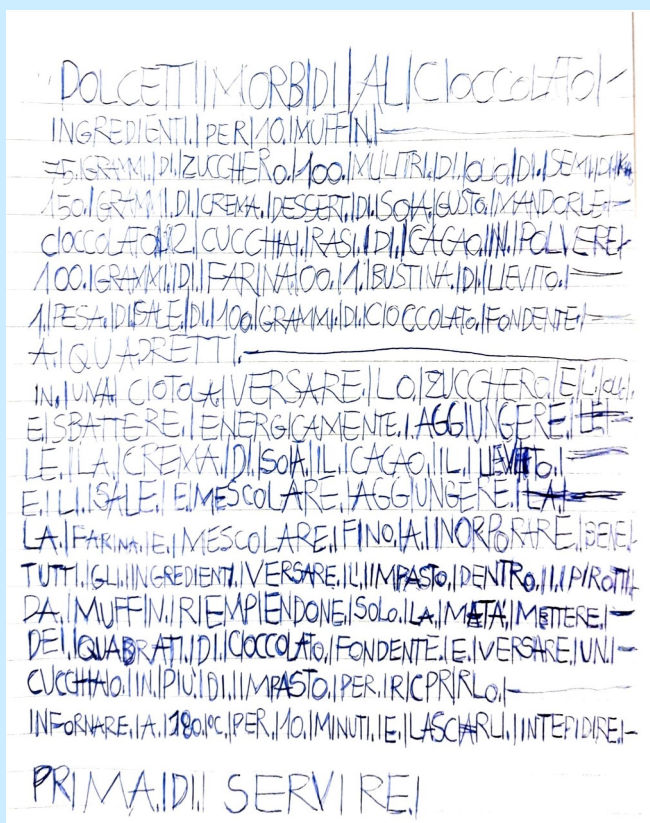 DOLCETTI|MORBIDI|AL|CIOCCOLATO|-
INGREDIENTI.|PER|10.|MUFFIN|
75.|GRAMMI.|DI|ZUCCHERO.|100.|MILLITRI.|DI.|OLIO|DI.|SEMI|DI
150.|GRAMMI.|DI.CREMA.|DESSERT.DI.|SOIA.|GUSTO.|MANDORLE.-
CIOCCOLATO|2|CUCCHIAI.|RASI.|DI.|CACAO|IN.|POLVERE|-
100.|GRAMMI.|DI|FARINA|00.|1.|BUSTINA.|DI.|LIEVITO.|
1.|PESA.|DI|SALE|DI.|100|GRAMMI.|DI.|CIOCCOLATO.|FONDENTE.|
A.|QUADRETTI.
IN.|UNA|CIOTOLA|VERSARE.|LO.|ZUCCHERO.|E|L'OLIO
E|SBATTERE.|ENERGICAMENTE.|AGGIUNGERE.|
LE.|LA.|CREMA.|DI.|SOIA.|IL.|CACAO.|IL.|LIEVITO.|
E.|LI.|SALE.|E|MESCOLARE.|AGGIUNGERE.|
LA.|FARINA.|E.|MESCOLARE.|FINO.|A.|INORPORARE.|BENE|
TUTTI.|GLI.|INGREDIENTI.|VERSARE.|L'IMPASTO.|DENTRO.|I.|PIROTTI
DA.|MUFFIN.|RIEMPIENDONE.|SOLO.|LA.|METÀ.|METTERE.|-
DEI.|QUADRATI.|DI.|CIOCCOLATO.|FONDENTE.|E.|VERSARE.|UN.|-
CUCCHIAIO.|IN.|PIÙ.|DI.|IMPASTO.|PER.|RICPRIRLO.|-
INFORNARE.|A.|180.|°C.|PER.|10.|MINUTI.|E.|LASCIARLI.|INTEPIDIRE.|-
PRIMA.|DI.|SERVIRE|